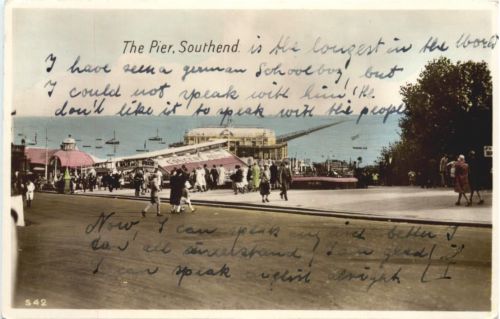 The Pier, Southend. is the longest in the World
I have seen a german Schoolboy, but
I could not speak with him, they
don't like it to speak with the people
Now, I can speak and better I
can all understand I am glad
I can speak english alright
542